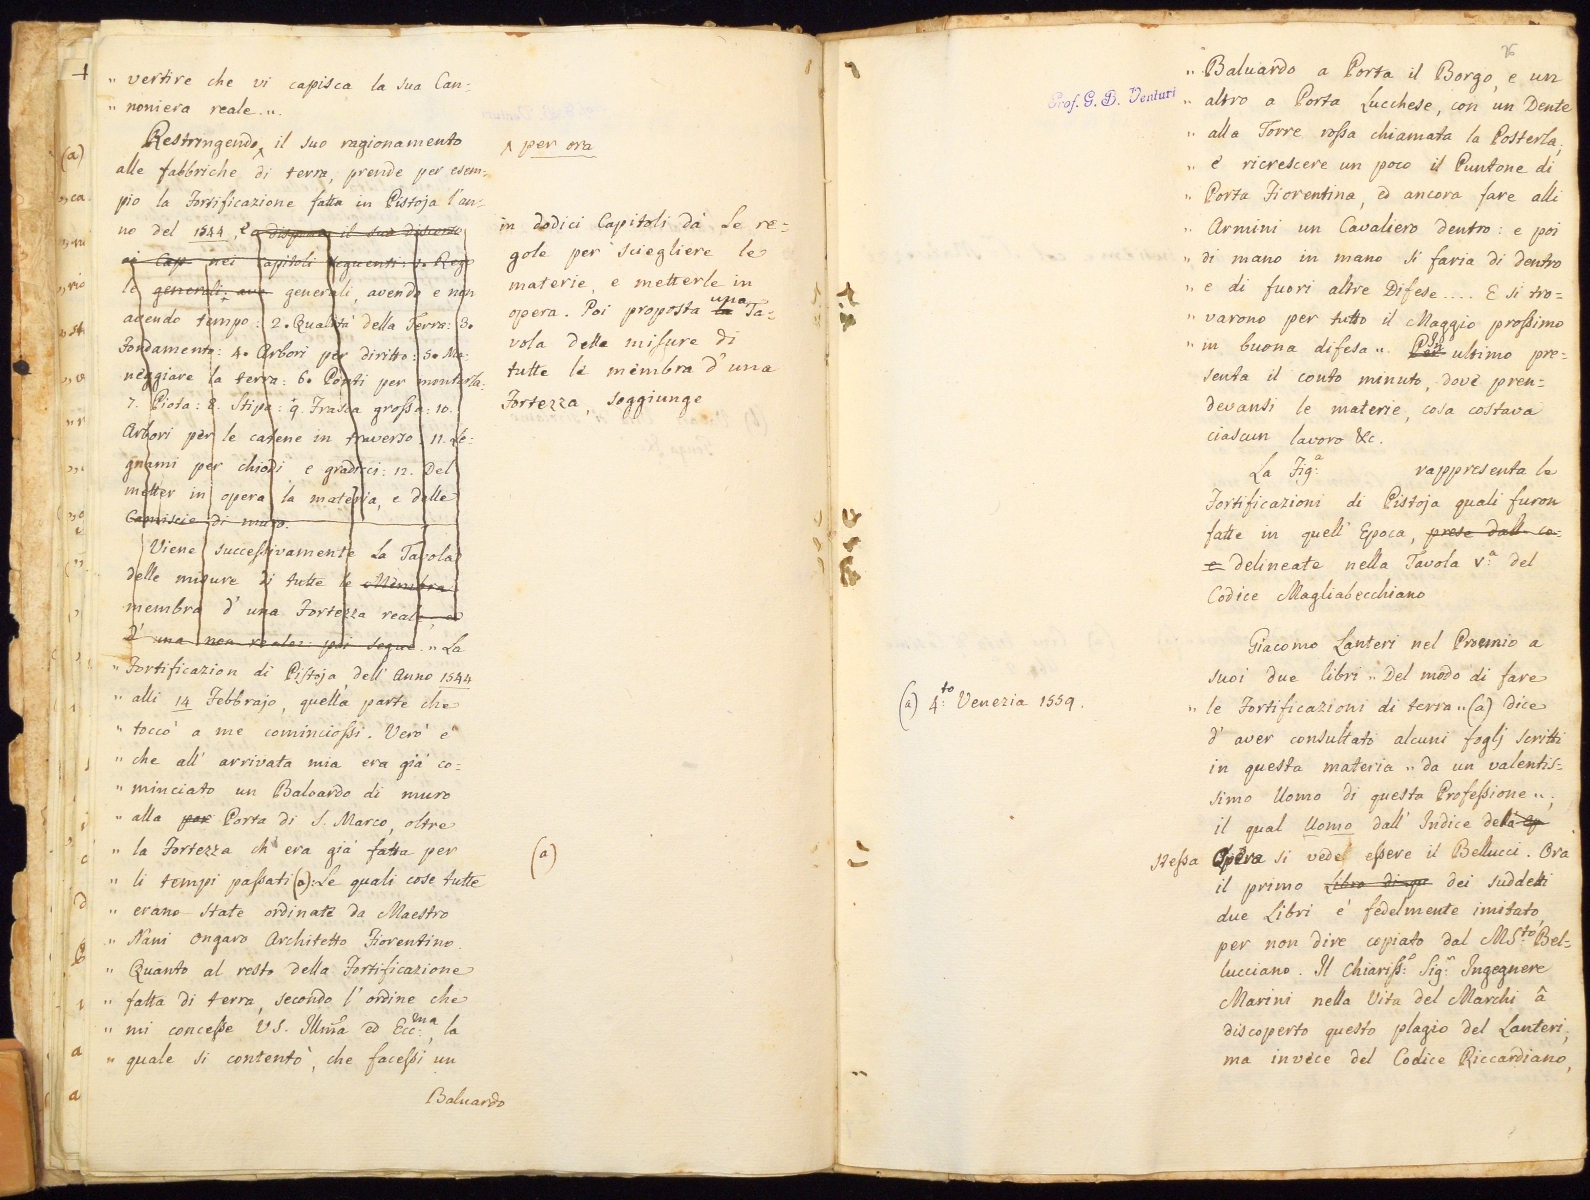 „ vertire che vi capisca la sua Can=
„ noniera reale.„.
Restringendo ^ il suo ragionamento
alle fabbriche di terra, prende per esem=
pio la Fortificazione fatta in Pistoja l'an=
no del 1544, e a disporre il suo discorso
ai Cap. nei Capitoli seguenti: 1. Rego
le generali: ave generali, avendo e non
avendo tempo: 2. Qualità della Terra: 3.
Fondamento: 4. Arbori per diritto: 5. Ma:
neggiare la terra: 6. Ponti per montarla:
7. Piota: 8. Stipa: 9. Frasca grossa: 10.
Arbori per le catene in traverso: 11. Le:
gnami per chiodi e gradicci: 12. Del
metter in opera la materia, e delle
Camiscie di muro.
Viene successivamente la Tavola
delle misure di tutte le Membra
membra d' una Fortezza reale, e
d' una non reale: poi segue. „ La
„ Fortificazion di Pistoja dell' Anno 1544
„ alli 14 Febbrajo, quella parte che
„ toccò a me cominciossi. Vero è
„ che all' arrivata mia era già co=
„ minciato un Baloardo di muro
„ alla por Porta di S. Marco, oltre
„ la Fortezza ch' era già fatta per
„ li tempi passati (a): Le quali cose tutte
„ erano state ordinate da Maestro
„ Nani Ongaro Architetto Fiorentino.
„ Quanto al resto della Fortificazione
„ fatta di terra, secondo l' ordine che
„ mi concesse VS. Illma ed Ecc:ma, la
„ quale si contentò, che facessi un
Baluardo
^ per ora
in dodici Capitoli dà le re=
gole per sciegliere le
materie, e metterle in
opera. Poi proposta la una Ta=
vola delle misure di
tutte le membra d' una
Fortezza, soggiunge
(a)
76
Prof. G. B. Venturi
„ Baluardo a Porta il Borgo, e un
„ altro a Porta Lucchese, con un Dente
„ alla Torre rossa chiamata la Posterla;
„ e ricrescere un poco il Puntone di
„ Porta Fiorentina, ed ancora fare alli
„ Armini un Cavaliero dentro: e poi
„ di mano in mano si faria di dentro
„ e di fuori altre Difese.... E si tro=
„ varono per tutto il Maggio prossimo
„ in buona difesa„. Per In ultimo pre=
senta il conto minuto, dove pren=
devansi le materie, cosa costava
ciascun lavoro &c.
La Fig:a rappresenta le
Fortificazioni di Pistoja quali furon
fatte in quell' Epoca, prese dall co=
e delineate nella Tavola V.a del
Codice Magliabecchiano
Giacomo Lanteri nel Proemio a
suoi due libri „ Del modo di fare
„ le Fortificazioni di terra„ (a) dice
d' aver consultato alcuni foglj scritti
in questa materia „ da un valentis=
simo Uomo di questa Professione„;
il qual Uomo dall' Indice della
stessa Opera si vede essere il Bellucci. Ora
il primo Libro di que dei suddetti
due Libri è fedelmente imitato,
per non dire copiato dal MS:to Bel=
lucciano. Il Chiariss:o Sig:r Ingegnere
Marini nella Vita del Marchi â
discoperto questo plagio del Lanteri;
ma invece del Codice Riccardiano,
(a) 4:to Venezia 1559.